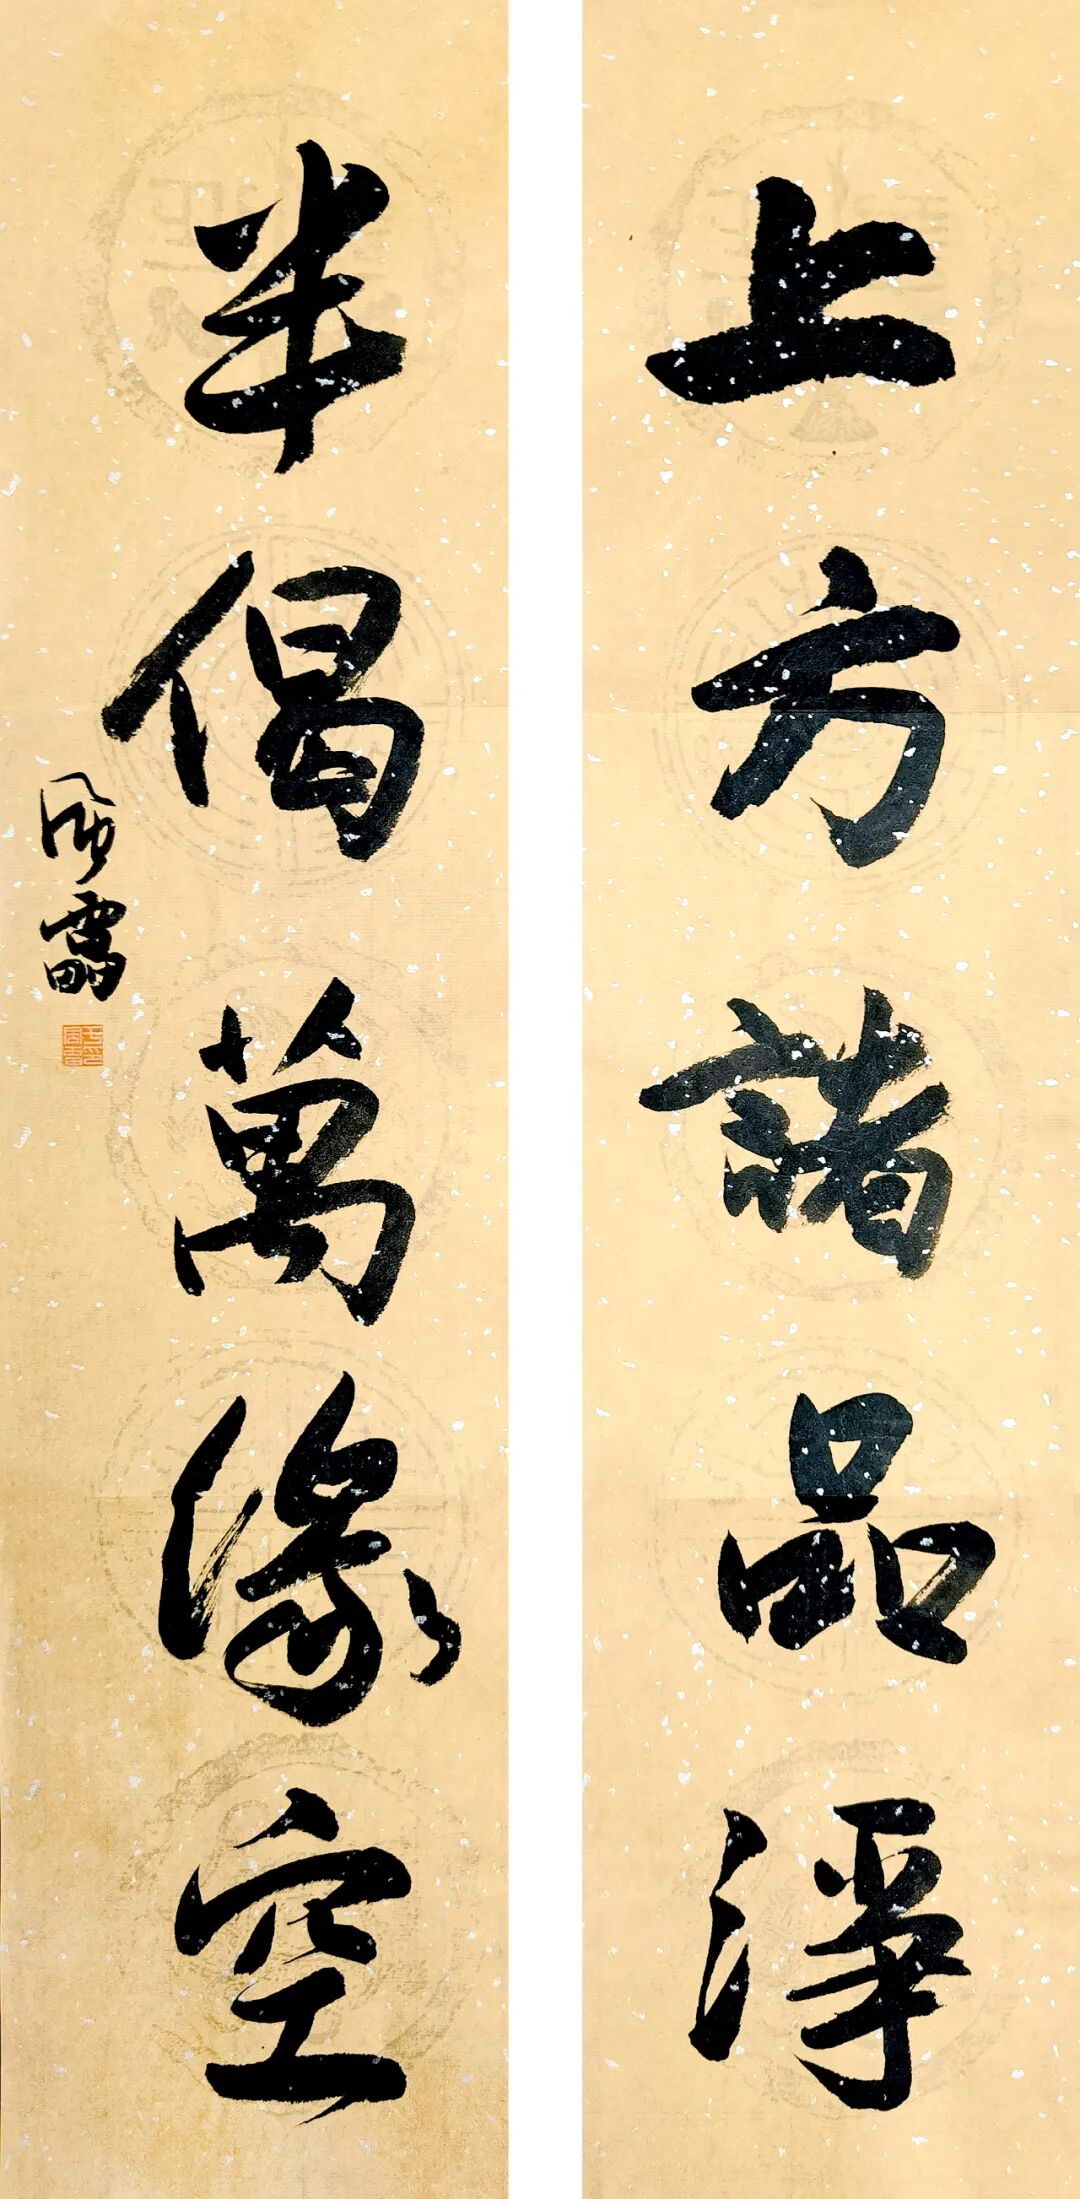 上方諸品淨
半偈萬緣空
风雷